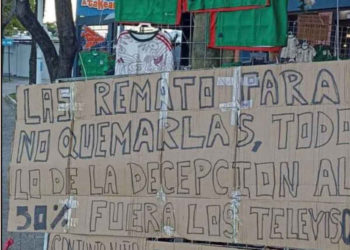 LAS REMATO PARA
NO QUEMARLAS, TODO
LO DE LA DECEPCION AL
50% FUERA LOS TELEVISO
CONJUNTO NIÑO